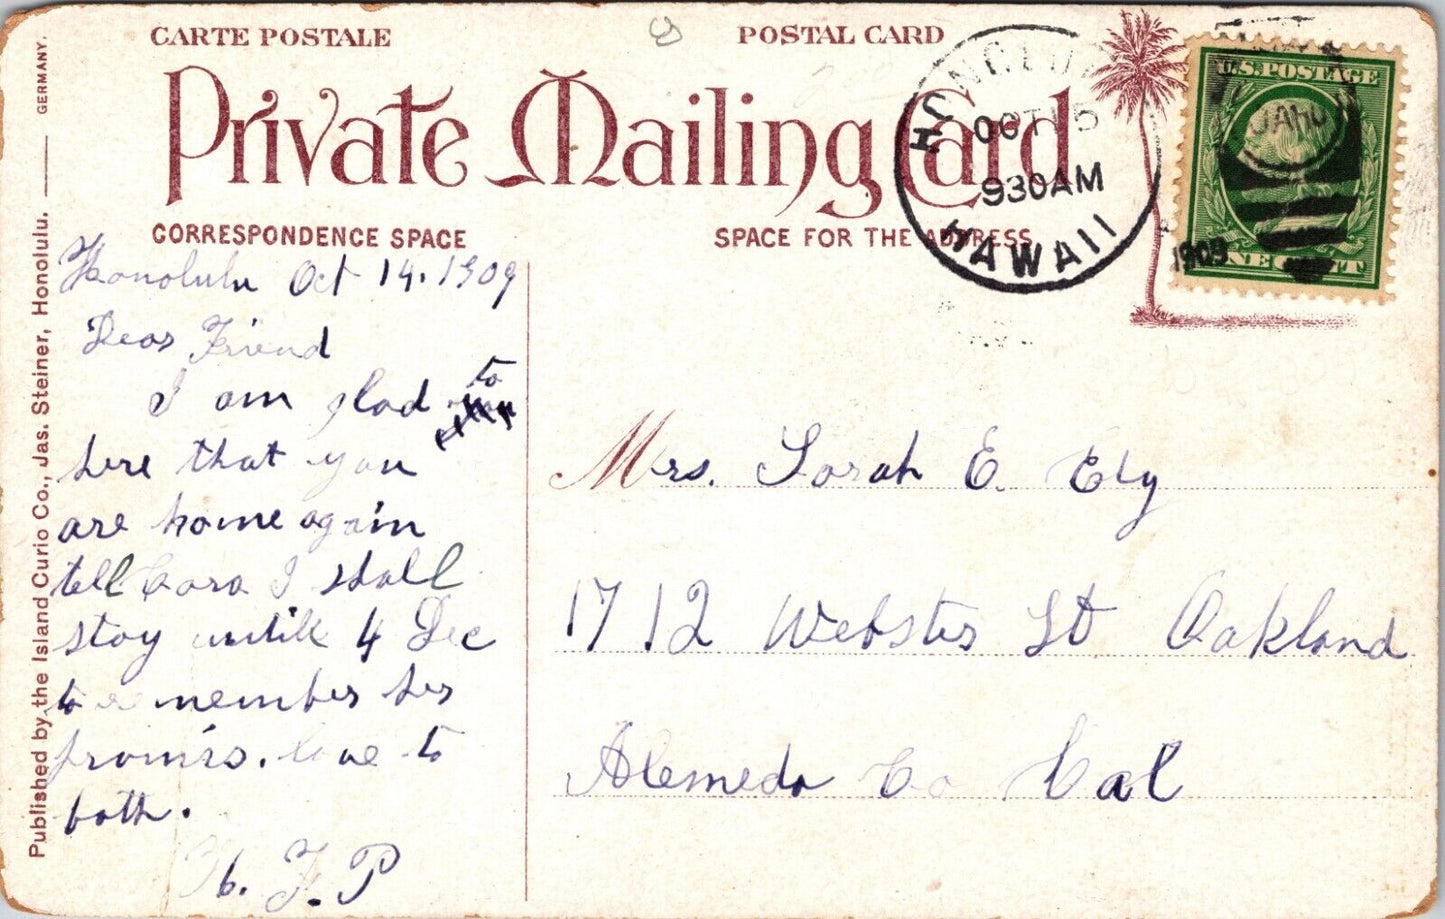 CARTE POSTALE
POSTAL CARD
Private Mailing Card
CORRESPONDENCE SPACE
SPACE FOR THE ADDRESS
HONOLULU
OCT 15
930AM
HAWAII
1909
OAHU
U.S.POSTAGE
ONE CENT
Published by the Island Curio Co., Jas. Steiner, Honolulu. GERMANY.
Honolulu Oct 14. 1909
Dear Friend
I am glad to
here that you
are home again
tell Cora I shall
stay untill 4 Dec
to remember her
promis. love to
both.
F. P
Mrs. Sarah E. Ely
1712 Webster St Oakland
Alemeda Co Cal